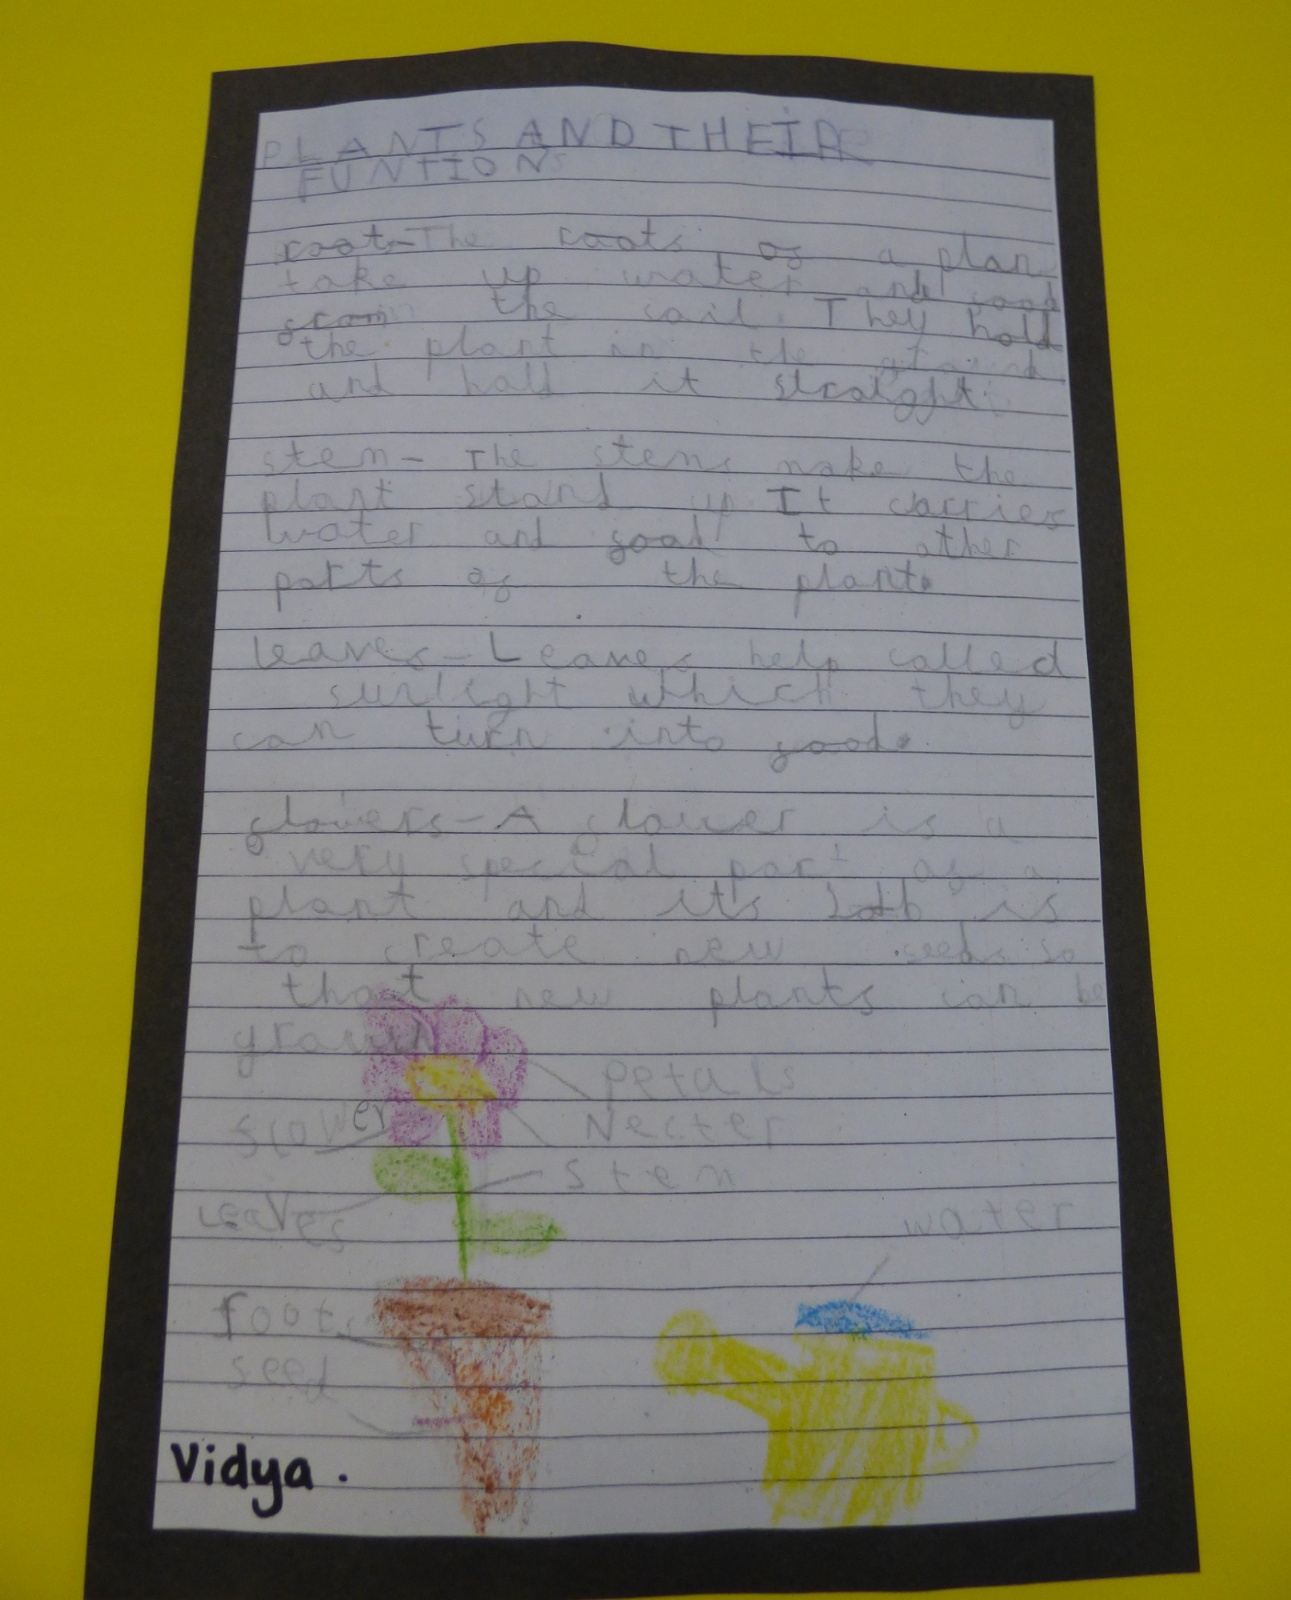 PLANTS AND THEIR
FUNTIONS
root-The roots of a plan
take up water and food
from the soil. They hold
the plant in the ground
and hold it straight.
stem- The stems make the
plant stand up It carries
water and food to other
parts of the plant.
leaves-Leaves help called
sunlight which they
can turn into food.
flowers-A flower is a
very special part of a
plant and its Job is
to create new seeds so
that new plants can be
grown
petals
flower
Necter
stem
Leaves
water
root
seed
Vidya.